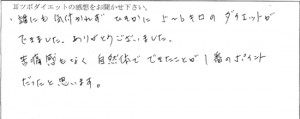 耳ツボダイエットの感想をお聞かせ下さい。
・誰にも気付かれず ひそかに 5〜6キロの ダイエットが
できました。ありがとうございました。
苦痛感もなく 自然体で できたことが 1番のポイント
だったと思います。